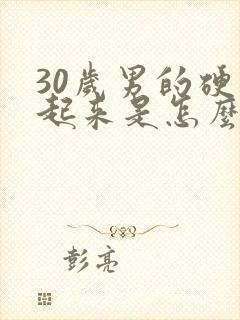 30歲男的硬
起來是怎麼
彭亮